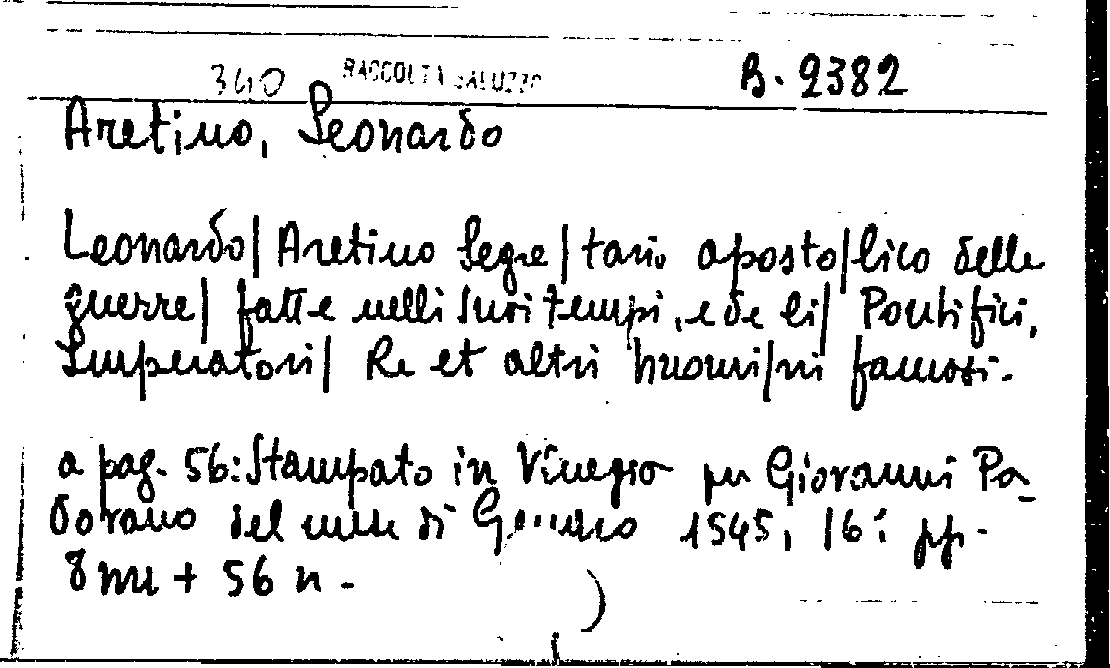 340 RACCOLTA SALUZZO B. 2382
Aretino, Leonardo
Leonardo/ Aretino Segre/tario aposto/lico delle
guerre/ fatte nelli suoi tempi, e de li/ Pontifici,
Imperatori/ Re et altri huomi/ni famosi.
a pag. 56: Stampato in Vinegia per Giovanni Pa-
dovano del mese di Gennaro 1545, 16° pp.
8 nn + 56 n.